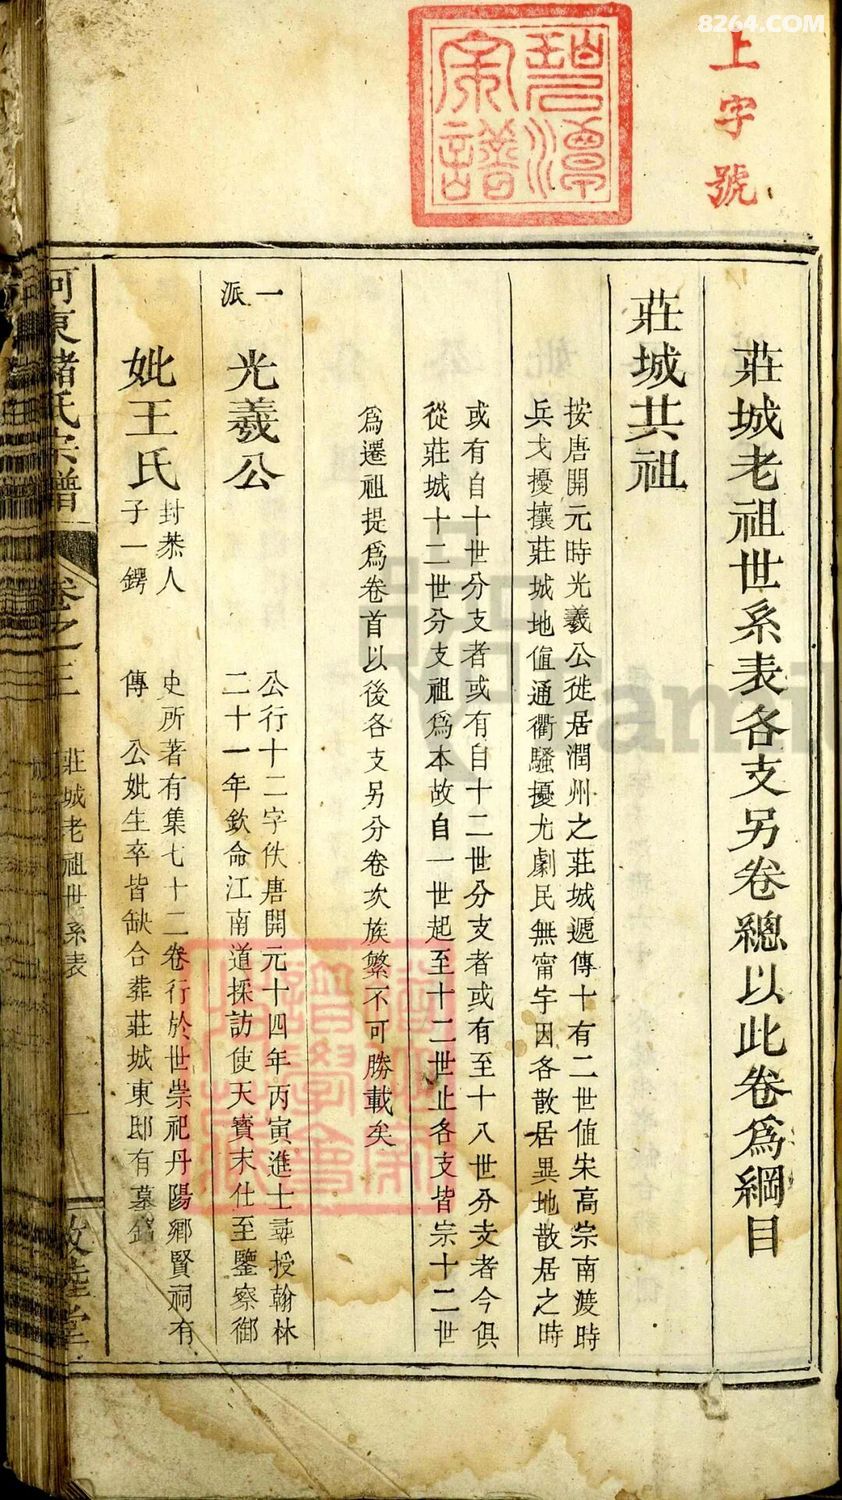 8264.COM
上字號
莊城老祖世系表各支另卷總以此卷爲綱目
莊城共祖
按唐開元時光羲公徙居潤州之莊城遞傳十有二世值宋高宗南渡時
兵戈擾攘莊城地值通衢騷擾尤劇民無甯宇因各散居異地散居之時
或有自十世分支者或有自十二世分支者或有至十八世分支者今俱
從莊城十二世分支祖爲本故自一世起至十二世止各支皆宗十二世
爲遷祖提爲卷首以後各支另分卷次族繁不可勝載矣
一派
光羲公
公行十二字佚唐開元十四年丙寅進士尋授翰林
二十一年欽命江南道採訪使天寶末仕至鑒察御
妣王氏
封恭人
子一鍔
史所著有集七十二卷行於世崇祀丹陽鄉賢祠有
傳 公妣生卒皆缺合葬莊城東邸有墓銘
河東儲氏宗譜
卷之三
莊城老祖世系表
一
敦睦堂